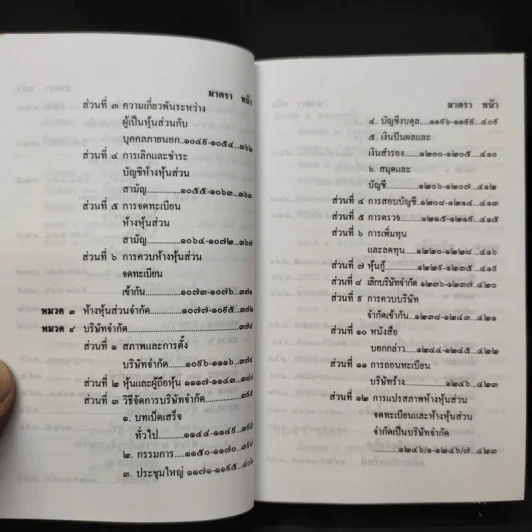 มาตรา หน้า
ส่วนที่ ๓ ความเกี่ยวพันระหว่าง
ผู้เป็นหุ้นส่วนกับ
บุคคลภายนอก ๑๐๔๙-๑๐๕๔...๓๖๒
ส่วนที่ ๔ การเลิกและชำระ
บัญชีห้างหุ้นส่วน
สามัญ...............๑๐๕๕-๑๐๖๓...
ส่วนที่ ๕ การจดทะเบียน
ห้างหุ้นส่วน
สามัญ...............๑๐๖๔-๑๐๗๒...
ส่วนที่ ๖ การควบห้างหุ้นส่วน
จดทะเบียน
เข้ากัน...............๑๐๗๓-๑๐๗๖...
หมวด ๓ ห้างหุ้นส่วนจำกัด...........๑๐๗๗-๑๐๙๕...
หมวด ๔ บริษัทจำกัด....................
ส่วนที่ ๑ สภาพและการตั้ง
บริษัทจำกัด.......๑๐๙๖-๑๑๑๖...
ส่วนที่ ๒ หุ้นและผู้ถือหุ้น ๑๑๑๗-๑๑๔๓...
ส่วนที่ ๓ วิธีจัดการบริษัทจำกัด.................
๑. บทเบ็ดเสร็จ
ทั่วไป......๑๑๔๔-๑๑๔๙...
๒. กรรมการ....๑๑๕๐-๑๑๗๐...
๓. ประชุมใหญ่ ๑๑๗๑-๑๑๙๕...
มาตรา หน้า
๔. บัญชีงบดุล....๑๑๙๖-๑๑๙๙...๔๐๙
๕. เงินปันผลและ
เงินสำรอง.....๑๒๐๐-๑๒๐๕...๔๑๐
๖. สมุดและ
บัญชี............๑๒๐๖-๑๒๐๗..๔๑๒
ส่วนที่ ๔ การสอบบัญชี..๑๒๐๘-๑๒๑๔..๔๑๓
ส่วนที่ ๕ การตรวจ........๑๒๑๕-๑๒๑๙..๔๑๕
ส่วนที่ ๖ การเพิ่มทุน
และลดทุน........๑๒๒๐-๑๒๒๘...๔๑๖
ส่วนที่ ๗ หุ้นกู้................๑๒๒๙-๑๒๓๕...๔๑๙
ส่วนที่ ๘ เลิกบริษัทจำกัด ๑๒๓๖-๑๒๓๗..๔๒๐
ส่วนที่ ๙ การควบบริษัท
จำกัดเข้ากัน....๑๒๓๘-๑๒๔๓...๔๒๑
ส่วนที่ ๑๐ หนังสือ
บอกกล่าว.......๑๒๔๔-๑๒๔๕...๔๒๒
ส่วนที่ ๑๑ การถอนทะเบียน
บริษัทร้าง................๑๒๔๖...๔๒๓
ส่วนที่ ๑๒ การแปรสภาพห้างหุ้นส่วน
จดทะเบียนและห้างหุ้นส่วน
จำกัดเป็นบริษัทจำกัด
............๑๒๔๖/๑-๑๒๔๖/๗...๔๒๓